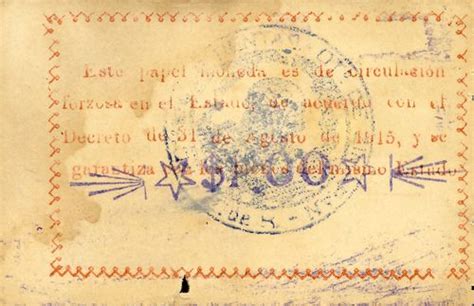 Este papel moneda es de circulación
forzosa en el Estado, de acuerdo con el
Decreto de 31 de Agosto de 1915, y se
garantiza con los bienes del mismo Estado
$1.00